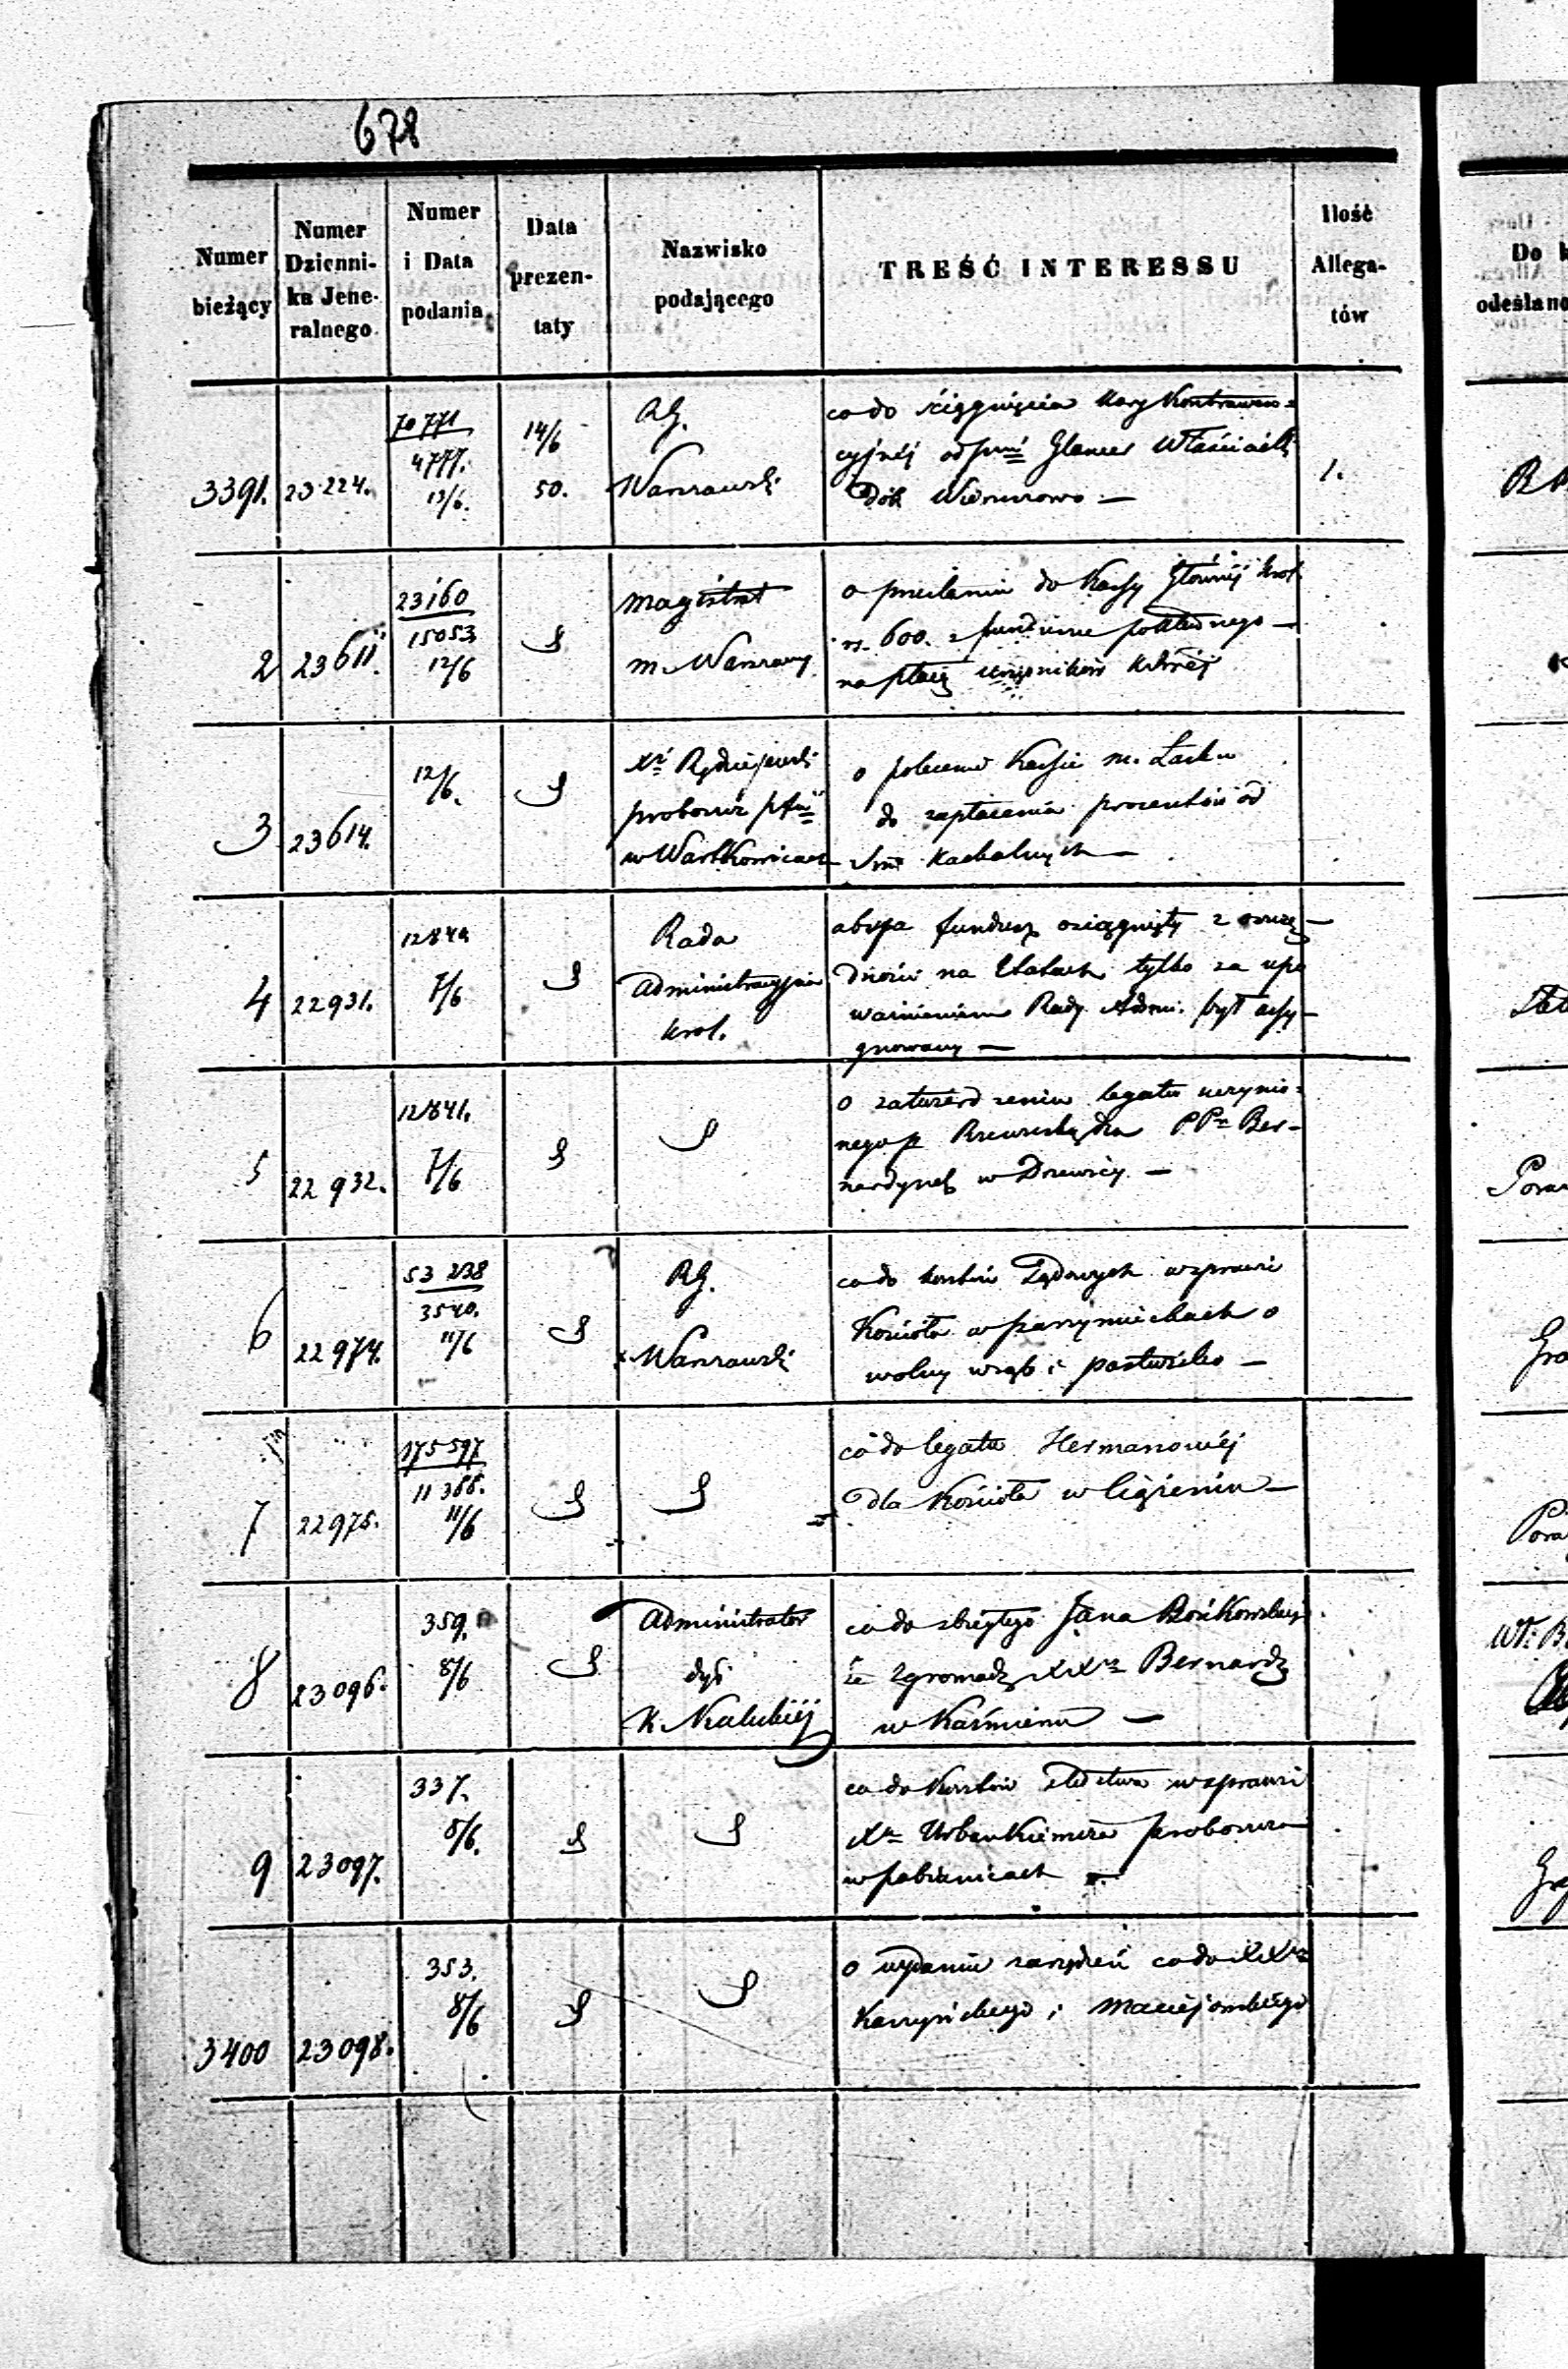 678
Numer bieżący | Numer Dzienni-ka Jene-ralnego | Numer i Data podania | Data prezen-taty | Nazwisko podającego | TREŚĆ INTERESSU | Ilość Allega-tów | Do
odesłano
3391. | 23224. | 70771 / 4777. 13/6. | 14/6 50. | RG. Warszawski | co do ściągnięcia kary Kontrawen=
cyjnéj od Glancer Właścicielki
Dóbr | 1.
2 | 23611. | 23160 / 15053 12/6 | Magistrat m. Warszawy | o przesłaniu do Kassy Głównéj Król.
rs. 600. z funduszu pokładnego —
na płacę urzędników
3 | 23614. | 12/6. | Xs proboszcz w Wartkowicach | o polecenie Kassie m. Łasku
do zapłacenia procentów od
Summ Kachalnych —
4 | 22931. | 12840 7/6 | Rada Administracyjna Król. | ażeby fundusz osiągnięty z oszczę—
dności na Etatach tylko za upo
ważnieniem Rady Admi. był assy—
gnowany —
5 | 22932. | 12841. 7/6 | o zatwierdzeniu legatu uczynio=
nego p. dla PPn Ber—
nardynek w Drzewicy —
6 | 22974. | 53238 / 3540. 11/6 | RG. Warszawski | co do kosztów Sądowych w sprawie
Kościoła w parzymiechach o
wolny wrąb i pastwisko —
7 | 22975. | 175597 / 11388. 11/6 | co do legatu Hermanowéj
dla Kościoła w Ciążeniu —
8 | 23096. | 359. 8/6 | Administrator dyś K. Kaliskiéj | co do zbiegłego Jana Bońkowskiego
ze Zgromadz. XXrz Bernardy
w Kaźmierzu —
9 | 23097. | 337. 8/6. | co do Kosztów Śledztwa w sprawie
Xa Urbankiewicza proboszcza
w pabianicach —
3400 | 23098. | 353. 8/6 | o wydanie zarządzeń co do XX
i Maciejowskiego